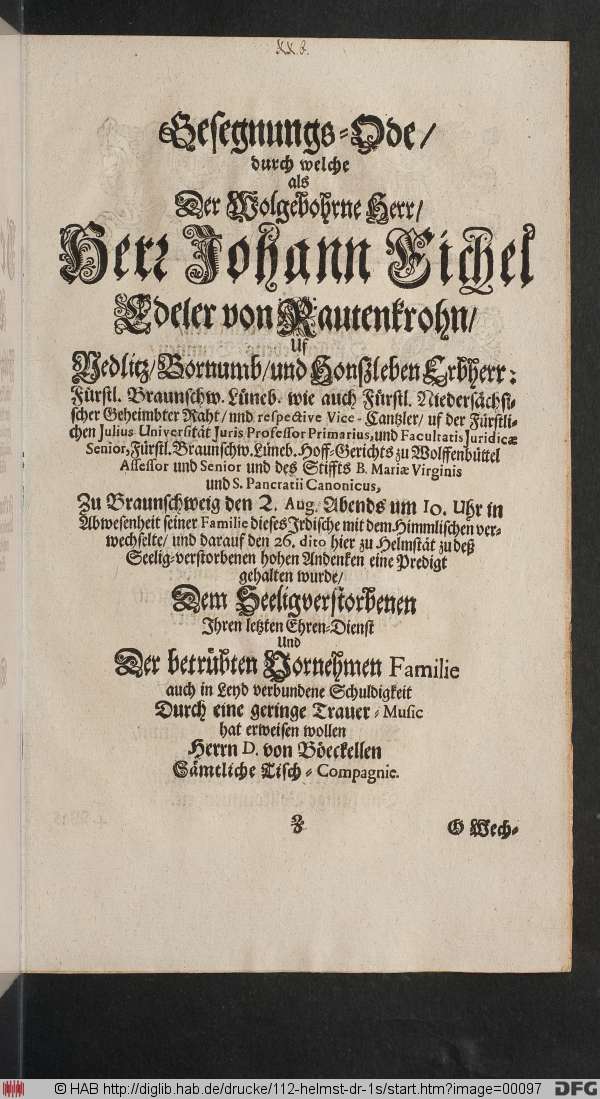 XX8.
Gesegnungs-Ode/
durch welche
als
Der Wolgebohrne Herr/
Herr Johann Eichel
Edeler von Rautenkrohn/
Uf
Nedlitz/Bornumb/und Honßleben Erbherr:
Fürstl. Braunschw. Lüneb. wie auch Fürstl. Niedersächsi-
scher Geheimbter Raht/ nnd respective Vice-Cantzler/ uf der Fürstli-
chen Julius Universität Juris Professor Primarius, und Facultatis Juridicæ
Senior, Fürstl. Braunschw. Lüneb. Hoff-Gerichts zu Wolffenbüttel
Assessor und Senior und des Stiffts B. Mariæ Virginis
und S. Pancratii Canonicus,
Zu Braunschweig den 2. Aug. Abends um 10. Uhr in
Abwesenheit seiner Familie dieses Irdische mit dem Himmlischen ver-
wechselte/ und darauf den 26. dito hier zu Helmstät zu deß
Seelig-verstorbenen hohen Andenken eine Predigt
gehalten wurde/
Dem Seeligverstorbenen
Ihren letzten Ehren-Dienst
Und
Der betrübten Vornehmen Familie
auch in Leyd verbundene Schuldigkeit
Durch eine geringe Trauer-Music
hat erweisen wollen
Herrn D. von Böeckellen
Sämtliche Tisch-Compagnie.
O Wech-
© HAB http://diglib.hab.de/drucke/112-helmst-dr-1s/start.htm?image=00097
DFG